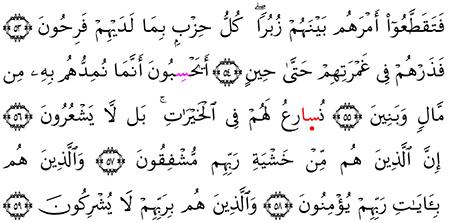 فَتَقَطَّعُوٓا۟ أَمْرَهُم بَيْنَهُمْ زُبُرًا ۖ كُلُّ حِزْبٍۭ بِمَا لَدَيْهِمْ فَرِحُونَ ﴿٥٣﴾
فَذَرْهُمْ فِى غَمْرَتِهِمْ حَتَّىٰ حِينٍ ﴿٥٤﴾ أَيَحْسِبُونَ أَنَّمَا نُمِدُّهُم بِهِۦ مِن
مَّالٍ وَبَنِينَ ﴿٥٥﴾ نُسَارِعُ لَهُمْ فِى ٱلْخَيْرَٰتِ ۚ بَل لَّا يَشْعُرُونَ ﴿٥٦﴾
إِنَّ ٱلَّذِينَ هُم مِّنْ خَشْيَةِ رَبِّهِم مُّشْفِقُونَ ﴿٥٧﴾ وَٱلَّذِينَ هُم
بِـَٔايَـٰتِ رَبِّهِمْ يُؤْمِنُونَ ﴿٥٨﴾ وَٱلَّذِينَ هُم بِرَبِّهِمْ لَا يُشْرِكُونَ ﴿٥٩﴾